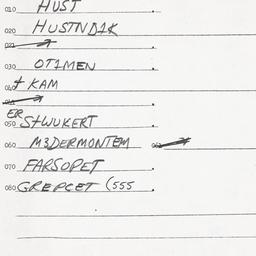 010 HUST
020 HUSTNDIK
021
030 OTIMEN
040 & KAM
050 ER S+WUKERT
060 M3DERMONTEM 061
070 FARSOPET
080 GREPCET (555